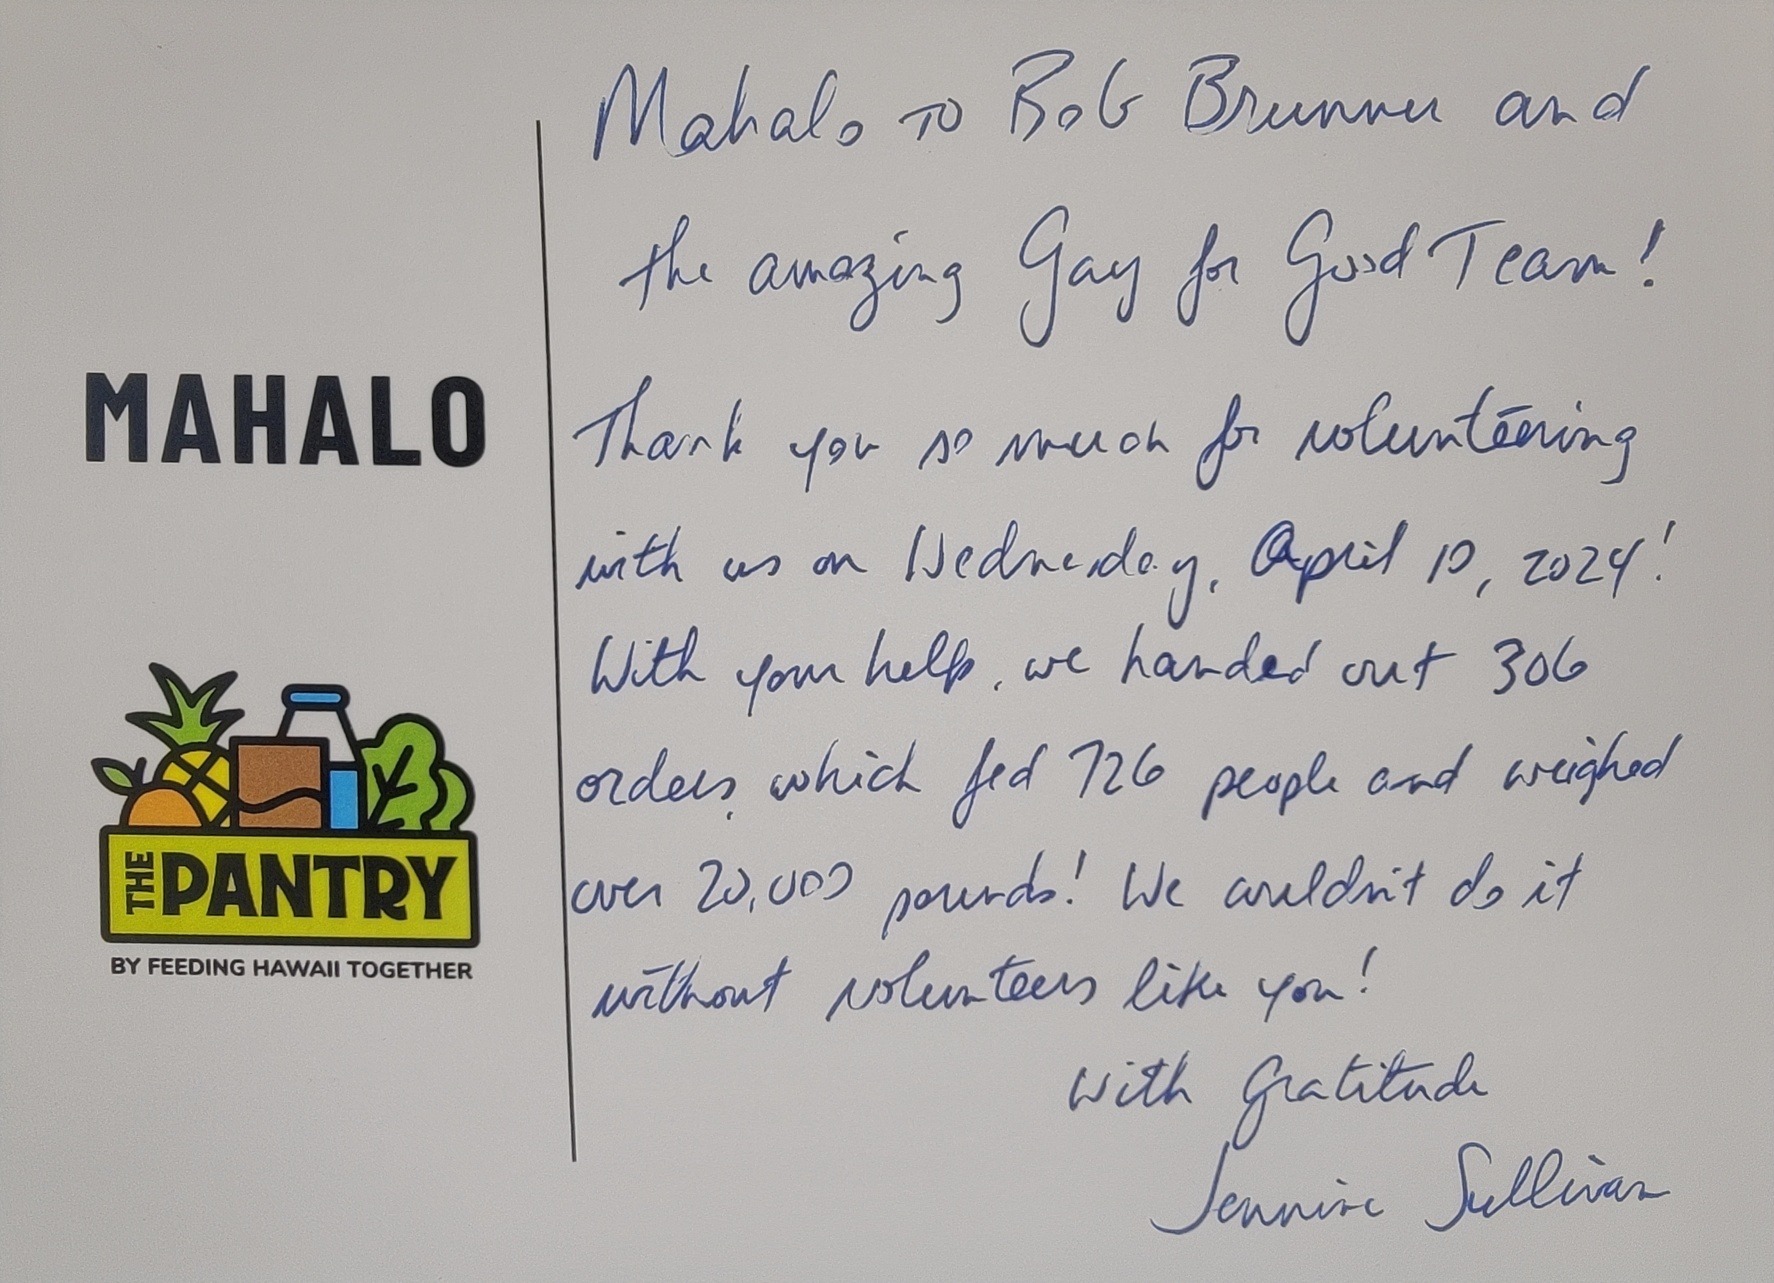 MAHALO
THE PANTRY
BY FEEDING HAWAII TOGETHER
Mahalo to Bob Brunner and
the amazing Gay for Good Team!
Thank you so much for volunteering
with us on Wednesday, April 10, 2024!
With your help, we handed out 306
orders, which fed 726 people and weighed
over 20,000 pounds! We couldn't do it
without volunteers like you!
With Gratitude
Jennine Sullivan